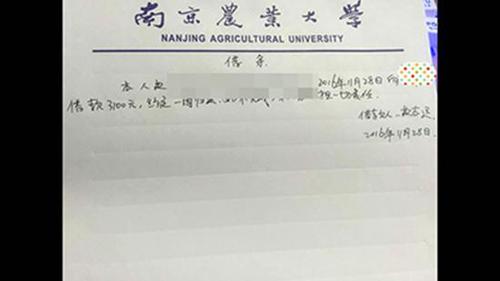 南京農業大學
NANJING AGRICULTURAL UNIVERSITY
借条
本人 2016年11月28日向
借款3100元,约定一周归还, 担一切责任
借款人
2016年11月28日